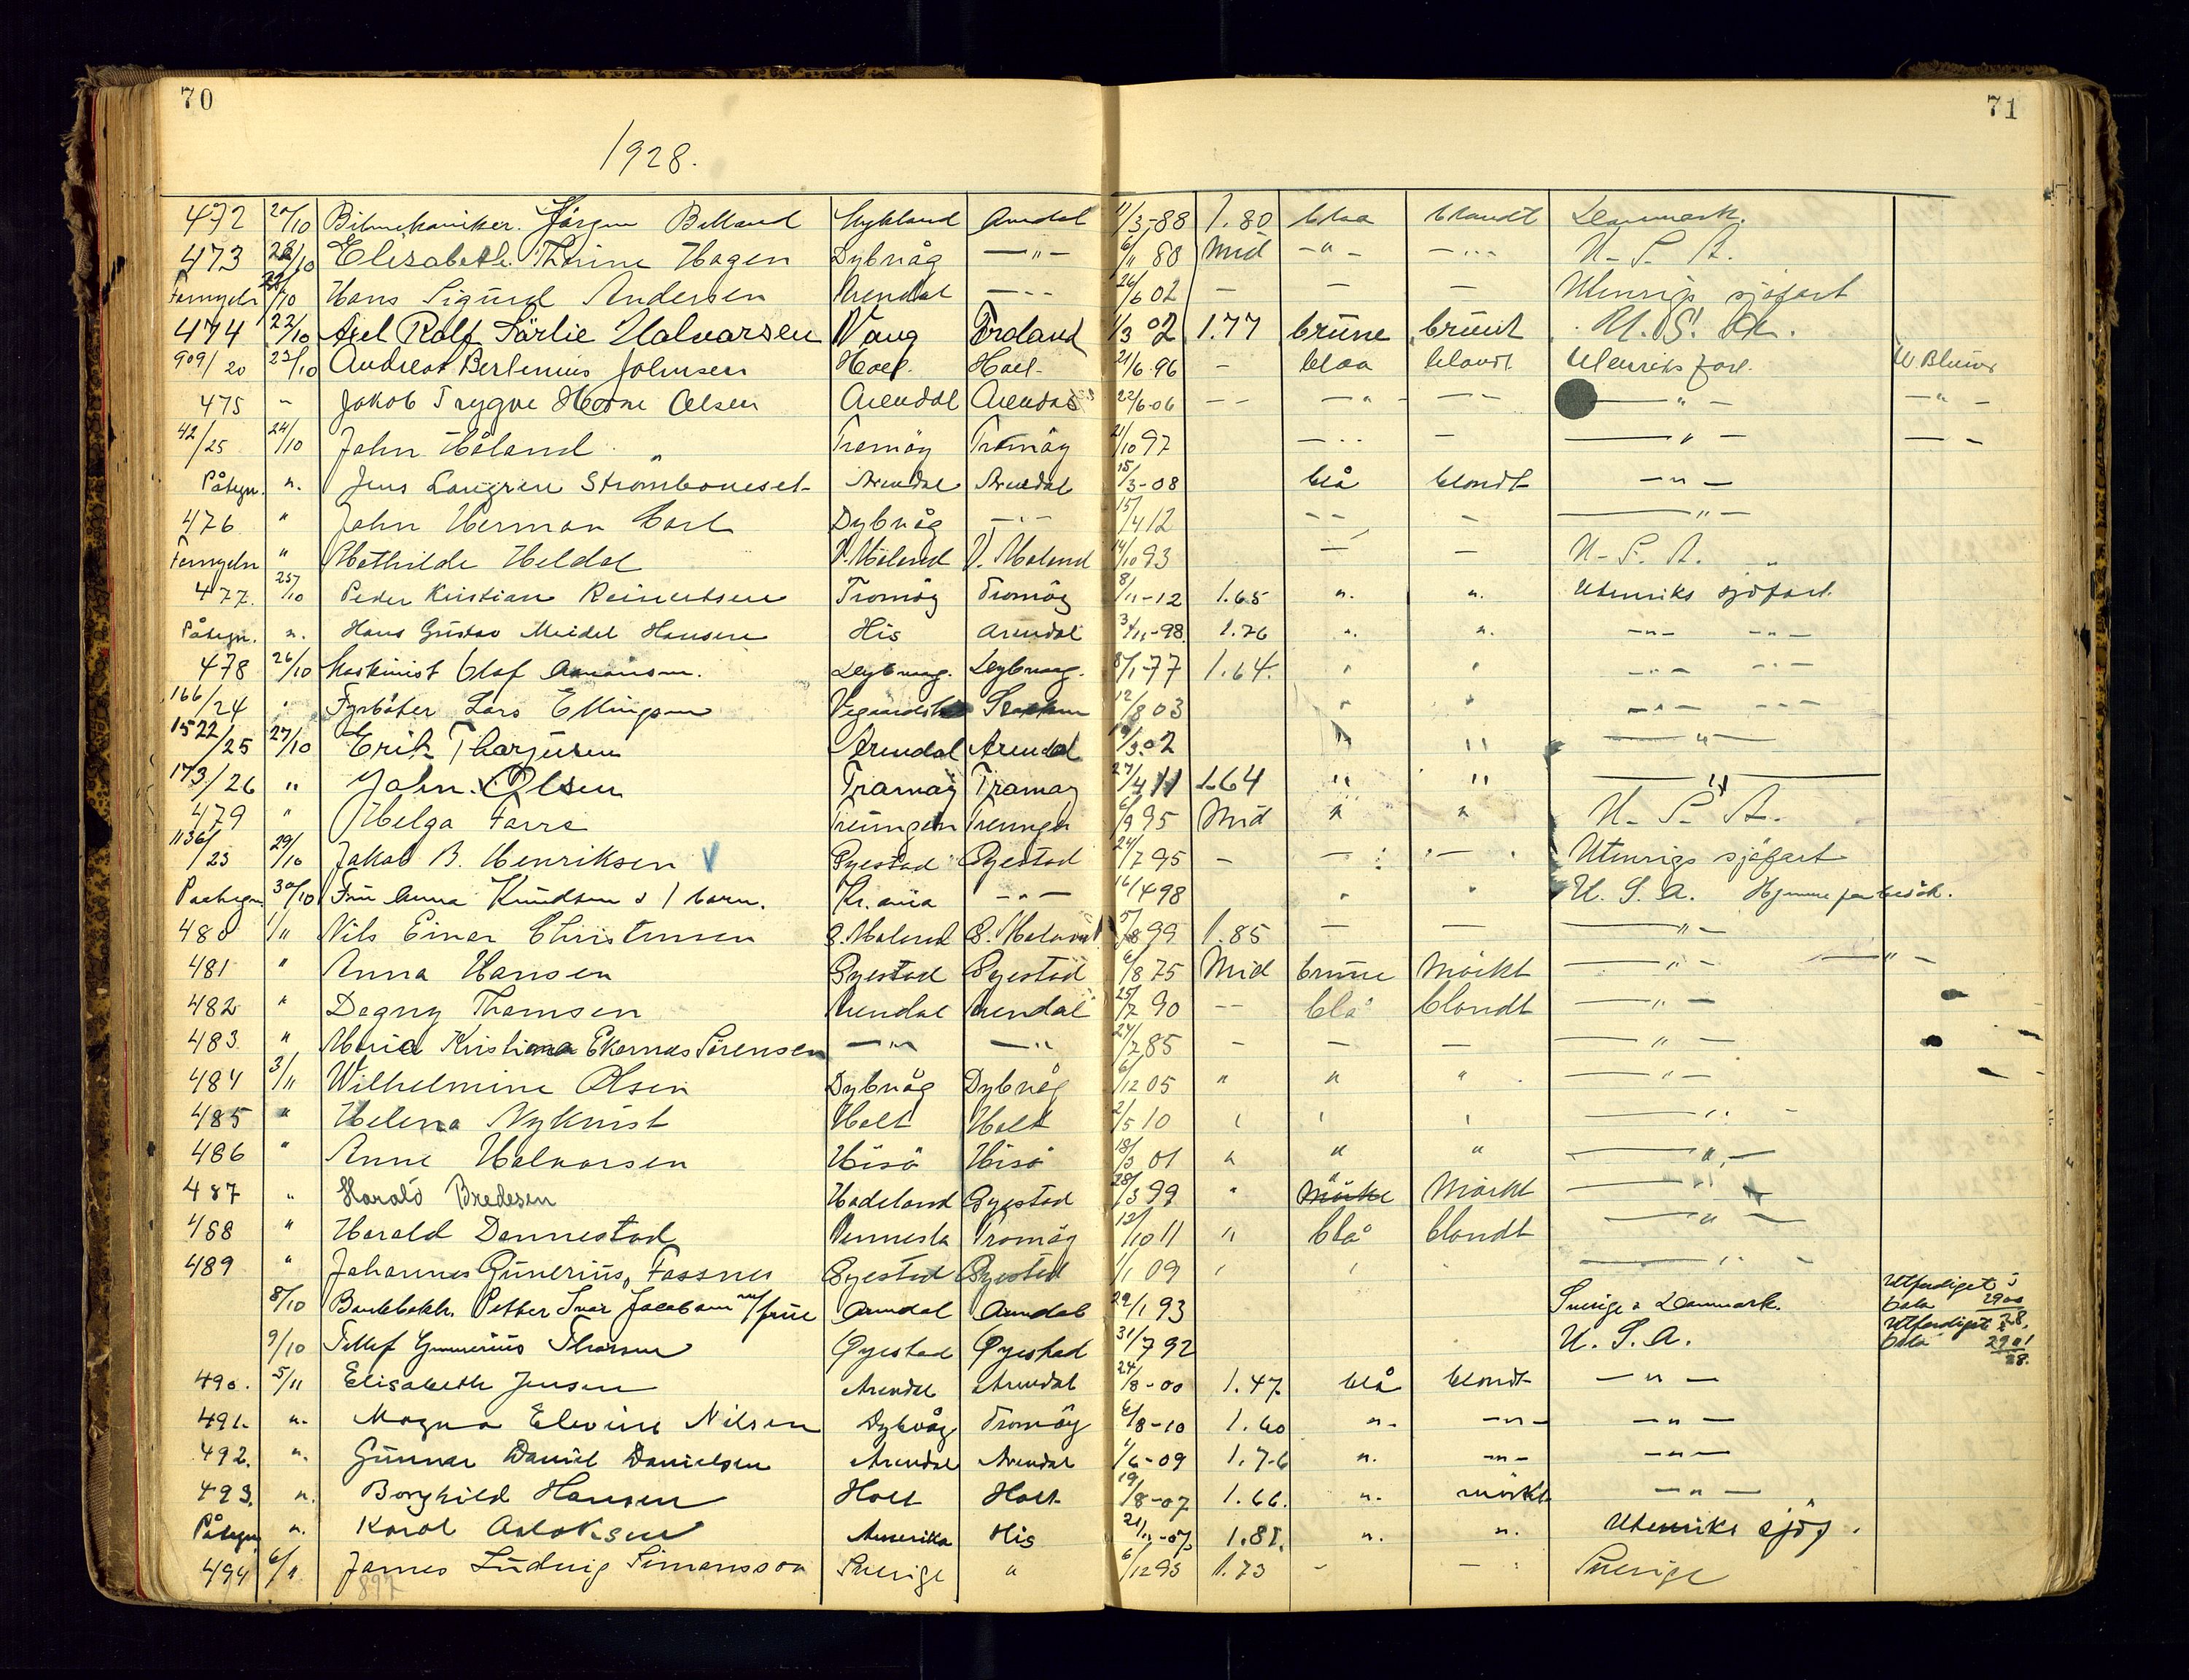 70
71
1928.
472 20/10 Bilmekaniker. Jörgen Belland Mykland Arendal 11/3-88 1.80 blaa blondt Danmark.
473 22/10 Elisabeth Thorine Hagen Dybvåg —"— 6/11 88 Mid -"- -"- U. S. A.
Fornyelse 22/10 Hans Sigurd Andersen Arendal —"— 26/6 02 — — — Utenrigs sjöfart
474 22/10 Axel Rolf Sörlie Halvorsen Vang Froland 1/3 02 1.77 brune brunt U. S. A.
909/20 23/10 Andreas Bertenius Johnsen Holt Holt 21/6 96 - blaa blondt Utenriks fart. W. Bluwer
475 - Jakob Trygve Horne Olsen Arendal Arendal 22/6-06 -- -"- -- —"— -"-
42/25 24/10 John Håland Tromöy Tromöy 21/10 97 -"- — —"— —-
Påtegn. n. Jens Laugrin Stromboneset Arendal Arendal 15/3-08 blå blondt -"-
476 " John Herman Carl Dybvåg -"- 15/4 12 -- - —"—
Fornyelse " Mathilde Heldal V. Moland V. Moland 14/10 93 — — U. S. A.
477. 25/10 Peder Kristian Reinertsen Tromöy Tromöy 8/11-12 1.65 n. n. Utenriks sjöfart.
Påtegn. n. Hans Gustav Meidel Hansen His Arendal 3/11-98 1.76 n. n. -"- -"-
478 26/10 Maskinist Olaf Amonsen. Dybvaag. Dybvaag. 8/1-77 1.64. " " -"- -"-
166/24 " Fyrböter Lars Ellingsen Vegaardsh 12/8 03 " " -"- -"-
1522/25 27/10 Erik Thorjusen Arendal Arendal 3.02 " " —"—
173/26 " John Olsen Tromöy Tromöy 27/4 11 1.64 " " —"—
479 " Helga Farre Treungen Treungen 6/9 95 Mid " " U. S. A.
1136/23 29/10 Jakob B. Henriksen V Öyestad Öyestad 24/7 95 - - - Utenrigs sjöfart
Paategn. 30/10 Fru Anna Knudsen & 1 barn. Kr.ania -"- 16/4 98 " " U. S. A. Hjemme paa besök.
480 1/11 Nils Einar Christensen Ö. Moland Ö. Moland 5/8 99 1.85 — — —"—
481 " Anna Hansen Öyestad Öyestad 6/8 75 Mid brune Mörkt —"— —"—
482 " Dagny Thomsen Arendal Arendal 25/7 90 -- blå blondt —"—
483 " Maria Kristiana Ekornes Sörensen —"— —"— 24/7 85 - - - —"—
484 3/11 Wilhelmine Olsen Dybvåg Dybvåg 6/12 05 " " " —"—
485 " Helena Nykvist Holt Holt 2/5 10 " " " —"—
486 " Anne Halvorsen Hisö Hisö 18/3 01 " " " —"—
487 " Harald Bredesen Hadeland Öyestad 28/3 99 " " Mörke Mörkt —"—
488 " Harald Dannestad Vennesla Tromöy 12/10 11 " blå blondt —"—
489 " Johannes Gunerius, Fossnes Öyestad Öyestad 1/1 09 " " —"—
8/10 Bankbokh. Petter Ivar Jacobsen m/frue Arendal Arendal 22/1 93 Sverige & Danmark. Utferdiget i bala 2900/28.
9/10 Tellef Gunnerius Thorsen Øyestad Øyestad 31/7 92 U. S. A. Utferdiget i bala 2901/28.
490. 5/11 Elisabeth Jensen Arendal Arendal 24/8-00 1.47 blå blondt -"-
491. n. Magna Elevine Nilsen Dybvåg Tromöy 6/8-10 1.60 n. -"- -"-
492. n. Gunnar Daniel Danielsen Arendal Arendal 1/6-09 1.76 n. -"- -"-
493. n. Borghild Hansen Holt Holt 19/8-07 1.66. n. mörkt -"-
Påtegn. n. Karol Aslaksen Amerika His 21/11-07 1.81. n. n. Utenriks sjöf.
494 6/11 James Ludvig Simonsson Sverige " 6/12 93 1.73 - - Sverige
897